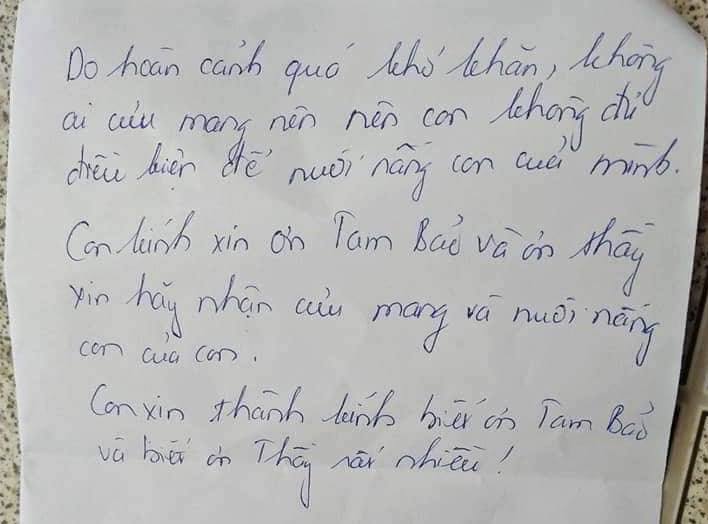 Do hoàn cảnh quá khó khăn, không
ai cưu mang nên nên con không đủ
điều kiện để nuôi nấng con của mình.
Con kính xin ơn Tam Bảo và ơn thầy
xin hãy nhận cưu mang và nuôi nấng
con của con.
Con xin thành kính biết ơn Tam Bảo
và biết ơn Thầy rất nhiều!